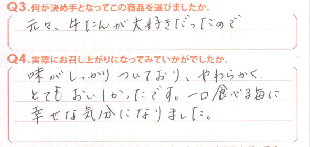 Q3.何が決め手となってこの商品を選びましたか。
元々、牛たんが大好きだったので
Q4.実際にお召し上がりになってみていかがでしたか。
味がしっかりついており、やわらかく
とてもおいしかったです。一口食べる毎に
幸せな気分になりました。